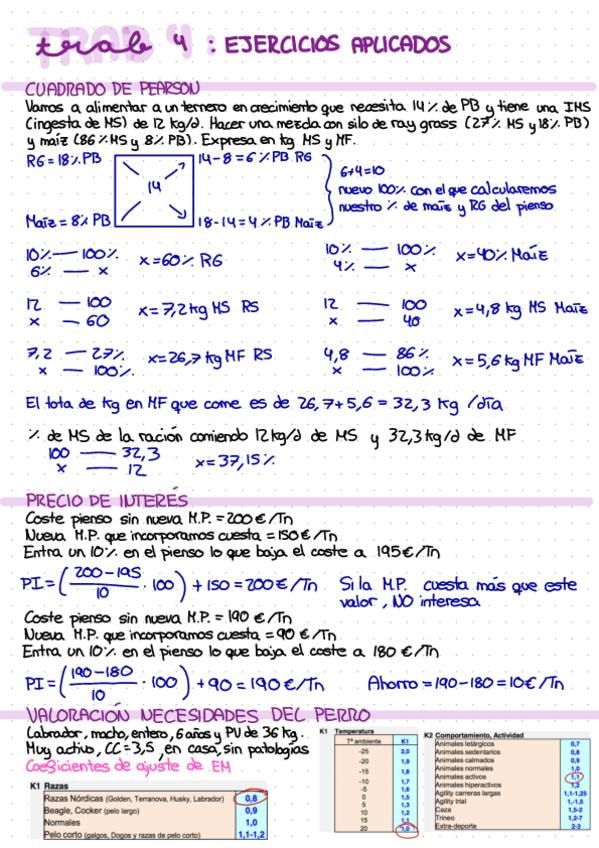 trab 4 : EJERCICIOS APLICADOS
CUADRADO DE PEARSON
Vamos a alimentar a un ternero en crecimiento que necesita 14% de PB y tiene una IMS
(ingesta de MS) de 12 kg/d. Hacer una mezcla con silo de ray grass (27% MS y 18% PB)
y maíz (86% MS y 8% PB). Expresa en kg MS y MF.
RG = 18% PB
14-8=6% PB RG
14
Maíz = 8% PB
18-14=4% PB Maíz
6+4=10
nuevo 100% con el que calcularemos
nuestro % de maíz y RG del pienso
10% — 100%
6% — x
x=60% RG
10% — 100%
4% — x
x=40% Maíz
12 — 100
x — 60
x=7,2 kg MS RS
12 — 100
x — 40
x=4,8 kg MS Maíz
7,2 — 27%
x — 100%
x=26,7 kg MF RS
4,8 — 86%
x — 100%
x=5,6 kg MF Maíz
El tota de kg en MF que come es de 26,7+5,6 = 32,3 kg /día
% de MS de la ración comiendo 12kg/d de MS y 32,3kg/d de MF
100 — 32,3
x — 12
x=37,15%
PRECIO DE INTERÉS
Coste pienso sin nueva M.P. = 200€/Tn
Nueva M.P. que incorporamos cuesta = 150€/Tn
Entra un 10% en el pienso lo que baja el coste a 195€/Tn
PI=(200-195/10 · 100) + 150 = 200€/Tn
Si la M.P. cuesta más que este
valor, NO interesa
Coste pienso sin nueva M.P. = 190 €/Tn
Nueva M.P. que incorporamos cuesta = 90 €/Tn
Entra un 10% en el pienso lo que baja el coste a 180 €/Tn
PI=(190-180/10 · 100) + 90 = 190€/Tn
Ahorro = 190-180 = 10€/Tn
VALORACIÓN NECESIDADES DEL PERRO
Labrador, macho, entero, 6 años y PV de 36 kg.
Muy activo, CC=3,5, en casa, sin patologías
Coeficientes de ajuste de EM
K1 Razas
Razas Nórdicas (Golden, Terranova, Husky, Labrador) 0,8
Beagle, Cocker (pelo largo) 0,9
Normales 1,0
Pelo corto (galgos, Dogos y razas de pelo corto) 1,1-1,2
K1 Temperatura
Tª ambiente K1
-25 2,0
-20 1,9
-15 1,8
-10 1,7
-5 1,6
0 1,5
5 1,3
10 1,2
15 1,1
20 1,0
K2 Comportamiento, Actividad
Animales letárgicos 0,7
Animales sedentarios 0,8
Animales calmados 0,9
Animales normales 1,0
Animales activos 1,1
Animales hiperactivos 1,2
Agility carreras largas 1,1-1,25
Agility trial 1,-1,5
Caza 1,5-2
Trineo 1,2-7
Extra-deporte 2-3